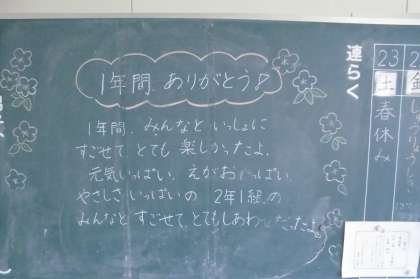 1年間 ありがとう♪
1年間、みんなと いっしょに
すごせて とても 楽しかったよ。
元気いっぱい、えがおいっぱい、
やさしさいっぱいの 2年1組の
みんなと すごせて、とてもしあわ
連らく
23
土
春休み
2
金